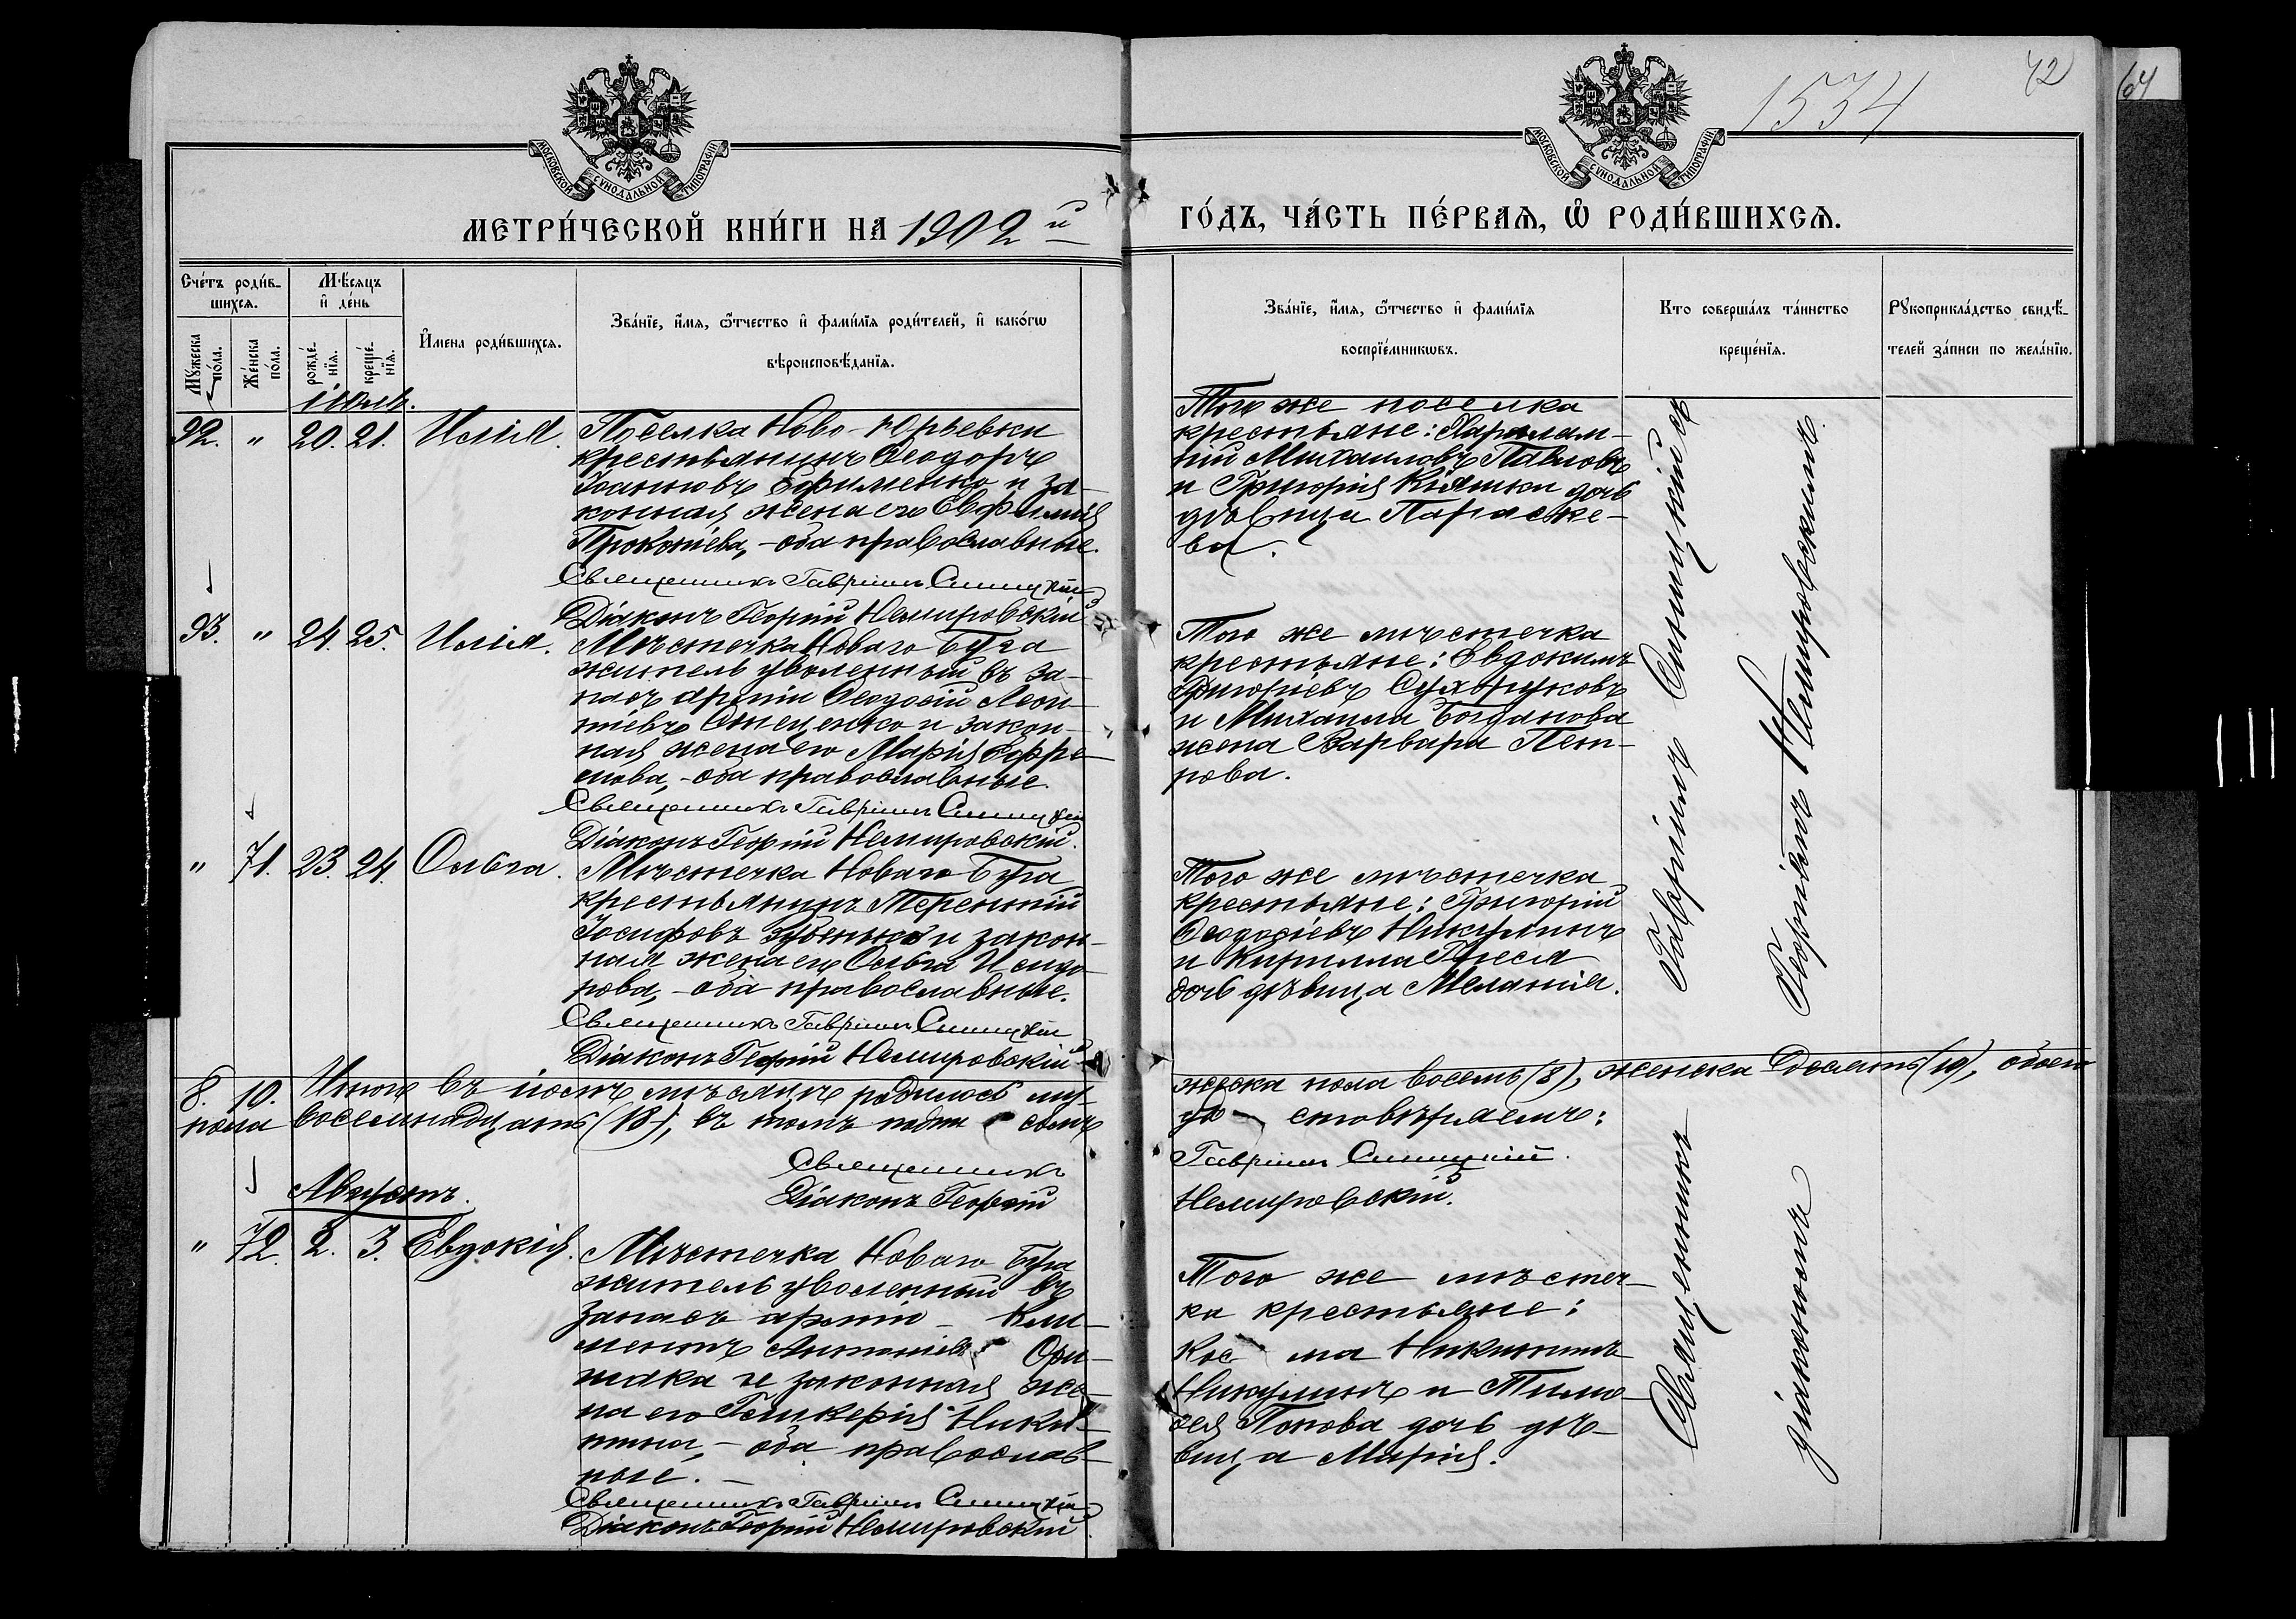 1534
42
64
МОСКОВСКОЙ СѴНОДАЛЬНОЙ ТИПОГРАФІИ
МОСКОВСКОЙ СѴНОДАЛЬНОЙ ТИПОГРАФІИ
МЕТРИ́ЧЕСКОЙ КНИ́ГИ НА 1902 й
ГО́ДЪ, ЧА́СТЬ ПЕ́РВАЯ, Ѡ҆ РОДИ́ВШИХСЯ.
Сче́тъ роди́в-
шихся.
Мѣ́сяцъ
и҆ де́нь
Мꙋ́жеска
по́ла.
Же́нска
по́ла.
рожде́-
нїя.
креще́-
нїя.
И҆мена роди́вшихся.
Зва́нїе, и҆́мя, ѻ҆́тчество и҆ фами́лїя роди́телей, и҆ како́гѡ
вѣроисповѣ́данїя.
Зва́нїе, и҆́мя, ѻ҆́тчество и҆ фами́лїя
воспрїе́мникѡвъ.
Кто соверша́лъ та́инство
креще́нїя.
Рꙋкоприкла́дство свидѣ́-
телей за́писи по жела́нїю.
іюль.
92. " 20. 21. Илія.
Поселка Ново-Юрьевки
крестьянинъ Ѳеодоръ
Іоанновъ Ефименко и за-
конная жена его Евфимія
Прокопіева, - оба православные.
Священникъ Гавріилъ Синицкій
Діаконъ Георгій Немировскій
Того же поселка
крестьяне: Харалам-
пій Михаиловъ Павловъ
и Григорія Кіяшки дочь
дѣвица Параске-
ва.
93. " 24. 25. Илія.
Мѣстечка Новаго Буга
житель уволенный въ за-
пасъ арміи Ѳеодосій Леон-
тіевъ и закон-
ная жена его Марія Ефре-
мова, - оба православные.
Священникъ Гавріилъ Синицкій
Діаконъ Георгій Немировскій.
Того же мѣстечка
крестьяне: Евдокимъ
Григоріевъ Сухоруковъ
и Михаила Богданова
жена Варвара Пет-
рова.
" 71. 23. 24. Ольга.
Мѣстечка Новаго Буга
крестьянинъ Терентій
Іосифовъ и закон-
ная жена его Ольга Исидо-
рова, - оба православные.
Священникъ Гавріилъ Синицкій
Діаконъ Георгій Немировскій
Того же мѣстечка
крестьяне: Григорій
Ѳеодосіевъ Никулинъ
и Кирилла
дочь дѣвица Меланія.
8. 10. Итого въ іюлѣ мѣсяцѣ родилось му-
жеска пола восемь (8), женска десять (10), обоего
пола восемнадцать (18), въ томъ подпи сомъ
удо стовѣряемъ:
Священникъ
Гавріилъ Синицкій.
Діаконъ Георгій
Немировскій.
Августъ.
" 72. 2. 3. Евдокія.
Мѣстечка Новаго Буга
житель уволенный въ
запасъ арміи - Кли-
ментъ Антоніевъ
и законная же-
на его Гликерія Ники-
тина, - оба православ-
ные. -
Священникъ Гавріилъ Синицкій
Діаконъ Георгій Немировскій.
Того же мѣстеч-
ка крестьяне:
Кос ма Никитинъ
Никулинъ и Тимо-
ѳея Попова дочь дѣ-
вица Марія.
Священникъ Гавріилъ Синицкій съ
діакономъ Георгіемъ Немировскимъ.